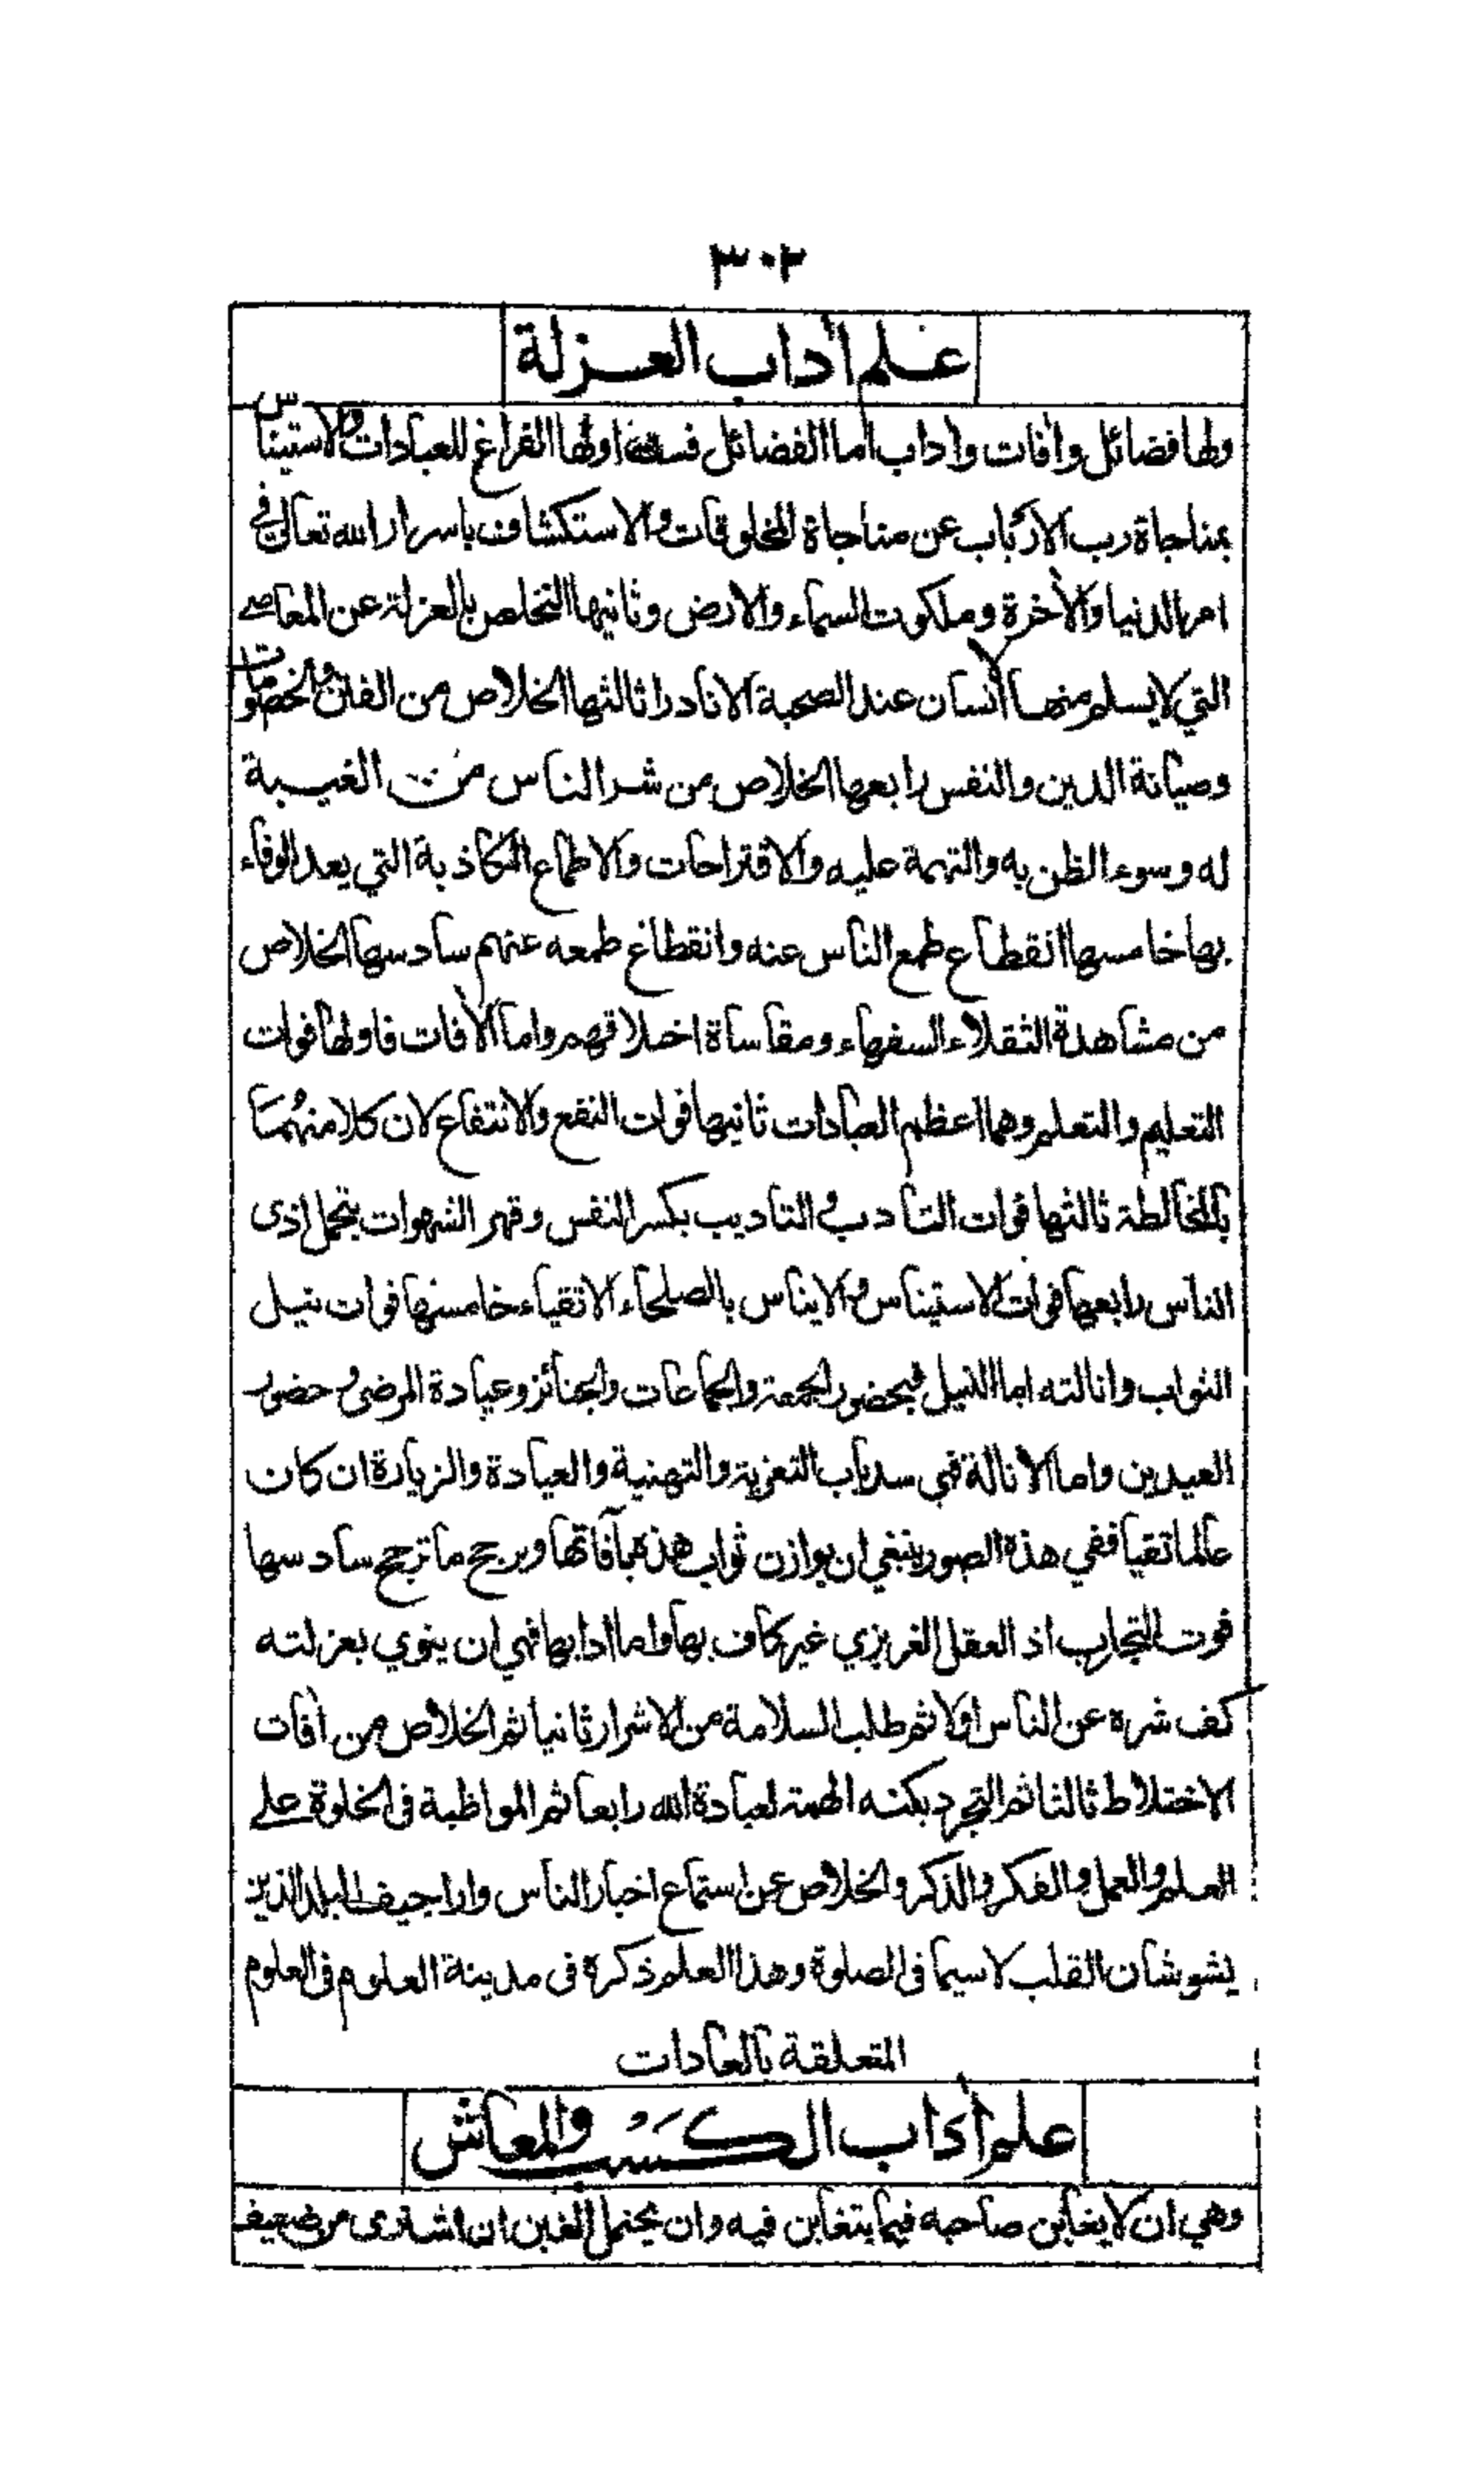 ٣٠٢
علم اداب العزلة
ولها فضائل وافات واداب اما الفضائل فستة اولها الفراغ للعبادات والاستيناس
بمناجاة رب الارباب عن مناجاة المخلوقات والاستكشاف باسرار الله تعالى في
امر الدنيا والأخرة وملكوت السماء والارض وثانيها التخلص بالعزلة عن المعاصے
التي لا يسلم منها الانسان عند الصحبة الا نادرا ثالثها الخلاص من الفتن والخصومات
وصيانة الدين والنفس رابعها الخلاص من شر الناس من الغيبة
له وسوء الظن به والتهمة عليه والاقتراحات والاطماع الكاذبة التي يعد الوفاء
بها خامسها انقطاع طمع الناس عنه وانقطاع طمعه عنهم سادسها الخلاص
من مشاهدة الثقلاء السفهاء ومقاساة اخلاقهم واما الافات فاولها فوات
التعليم والتعلم وهما اعظم العبادات ثانيها فوات النفع والانتفاع لان كلا منهما
بالمخالطة ثالثها فوات التادب والتاديب بكسر النفس وقهر الشهوات بتحمل اذى
الناس رابعها فوات الاستيناس والايناس بالصلحاء الاتقياء خامسها فوات نيل
الثواب وانالته اما النيل فبحضور الجمعة والجماعات والجنائز وعيادة المرضى وحضور
العيدين واما الانالة فهي سد باب التعزية والتهنية والعيادة والزيارة ان كان
عالما تقيا ففي هذه الصور ينبغي ان يوازن ثواب هذه بآفاتها ويرجح ما ترجح سادسها
فوت التجارب اذ العقل الغريزي غير كاف بها واما ادابها فهي ان ينوي بعزلته
كف شره عن الناس اولا ثم طلب السلامة من الاشرار ثانيا ثم الخلاص من أفات
الاختلاط ثالثا ثم التجرد بكنه الهمة لعبادة الله رابعا ثم المواظبة فى الخلوة على
العلم والعمل والفكر والذكر والخلاص عن استماع اخبار الناس واراجيف البلد الذين
يشوشان القلب لا سيما فى الصلوة وهذا العلم ذكره فى مدينة العلوم فى العلوم
المتعلقة بالعادات
علم أداب الكسب والمعاش
وهي ان لا يغابن صاحبه فيما يتغابن فيه وان يحتمل الغبن ان اشترى من ضعيف